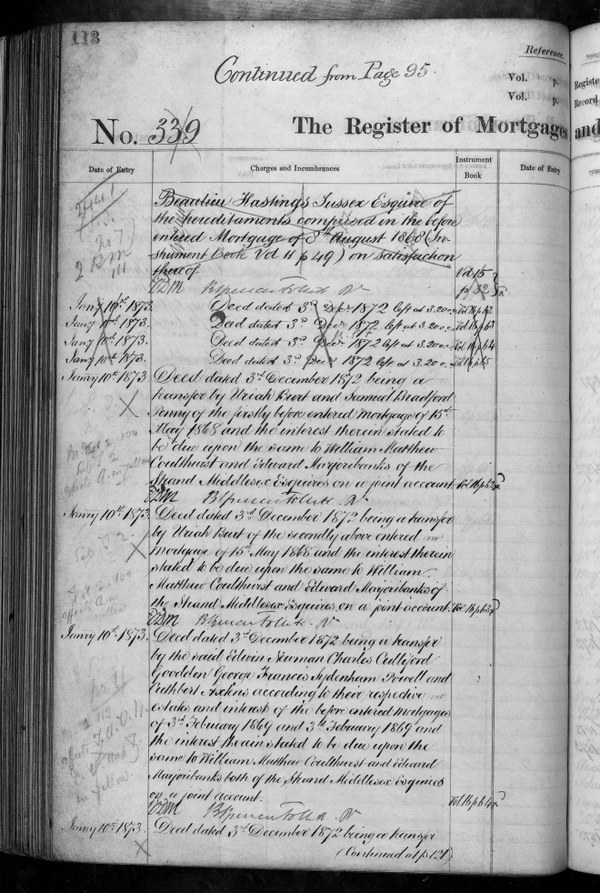 113
Reference.
Continued from Page 95.
Vol. p.
Vol. p.
No. 339
The Register of Mortgages and
Registe
Record
Date of Entry
Charges and Incumbrances
Instrument Book
Date of Entry
Beauclerc Hastings Sussex Esquire of
the hereditaments comprised in the before
entered Mortgage of 8th August 1868 (In-
strument Book Vol 11 p 49) on satisfaction
thereof
Vol 15
p 32
Jany 10th 1873. Deed dated 3rd Decr 1872 left at 3.20 Vol 16 p 62
Jany 10th 1873. Deed dated 3rd Decr 1872 left at 3.20 Vol 16 p 63
Jany 10th 1873. Deed dated 3rd Decr 1872 left at 3.20 Vol 16 p 64
Jany 10th 1873. Deed dated 3rd Decr 1872 left at 3.20 Vol 16 p 65
Janry 10th 1873 Deed dated 3rd December 1872 being a
transfer by Uriah Burt and Samuel Bradford
of the firstly before entered mortgage of 15th
May 1868 and the interest therein stated to
be due upon the same to William Matthew
Coulthurst and Edward Marjoribanks of the
Strand Middlesex Esquires on a joint account Vol 16 p 62
Janry 10th 1873. Deed dated 3rd December 1872 being a transfer
by Uriah Burt of the secondly above entered
mortgage of 15th May 1868 and the interest therein
stated to be due upon the same to William
Matthew Coulthurst and Edward Marjoribanks of
the Strand Middlesex Esquires on a joint account. Vol 16 p 63
Janry 10th 1873. Deed dated 3rd December 1872 being a transfer
by the said Edwin Newman Charles Culliford
Goodden George Francis Sydenham Powell and
Cuthbert according to their respective
estates and interests of the before entered mortgages
of 3rd February 1864 and 3rd February 1869 and
the interest therein stated to be due upon the
same to William Matthew Coulthurst and Edward
Marjoribanks both of the Strand Middlesex Esquires
on a joint account. Vol 16 p 64
Janry 10th 1873. Deed dated 3rd December 1872 being a transfer
(Continued at p 121)